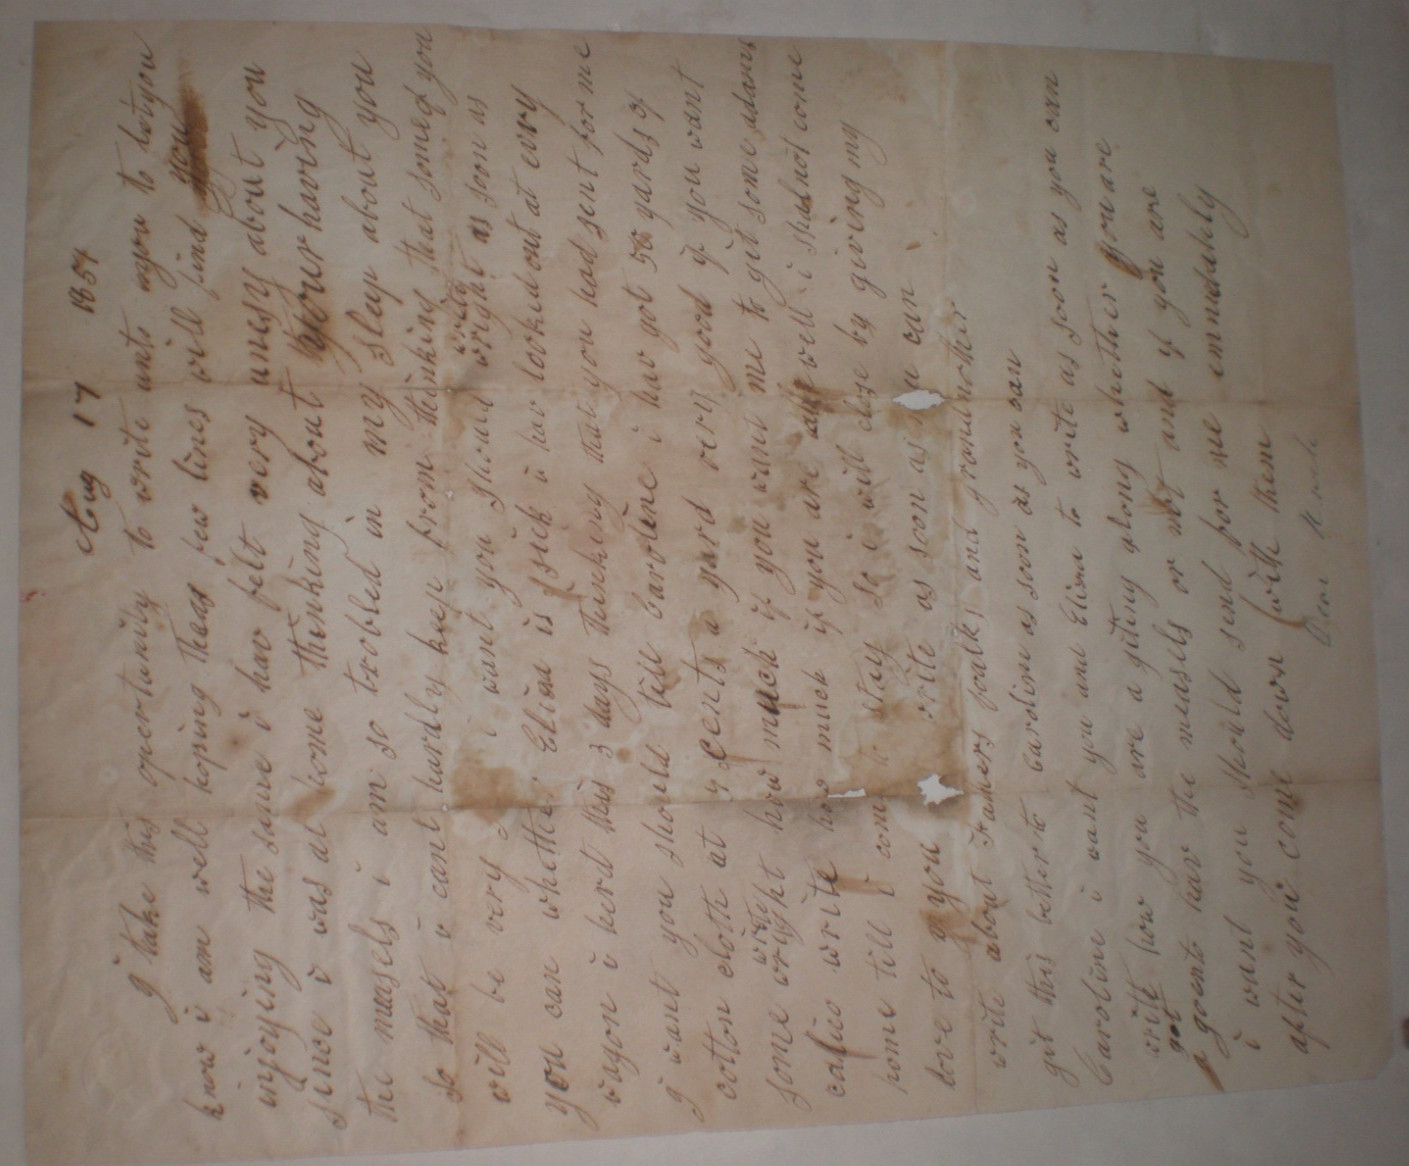 Aug 17 1854
I take this opertunity to write unto you to let you
know i am well hoping theas few lines will find you
injoying the same i hav felt very unesy about you
sinc i was at home thinking about your having
the measels i am so trobled in my sleep about you
so that i cant hardly keep from thinking that some of you
will be very i want you should write wright as soon as
you can whether Eliza is sick i hav looked out at evry
wagon i herd this 3 days thinking that you had sent for me
I want you should tell Caroline i hav got 50 yards of
cotton cloth at cents a yard very good if you want
some write wright how much if you want me to git some
calico write how much if you are all well i shal not come
home till i stay so i will close by giving my
love to you write as soon as you can
write about Farmers folks and grandmother
git this letter to Caroline as soon as you can
Caroline i want you and Eliza to write as soon as you can
write how you are a giting along whether you are
got a goint to hav the measels or not and if you are
i want you should send for me emmediately
after you come down with them